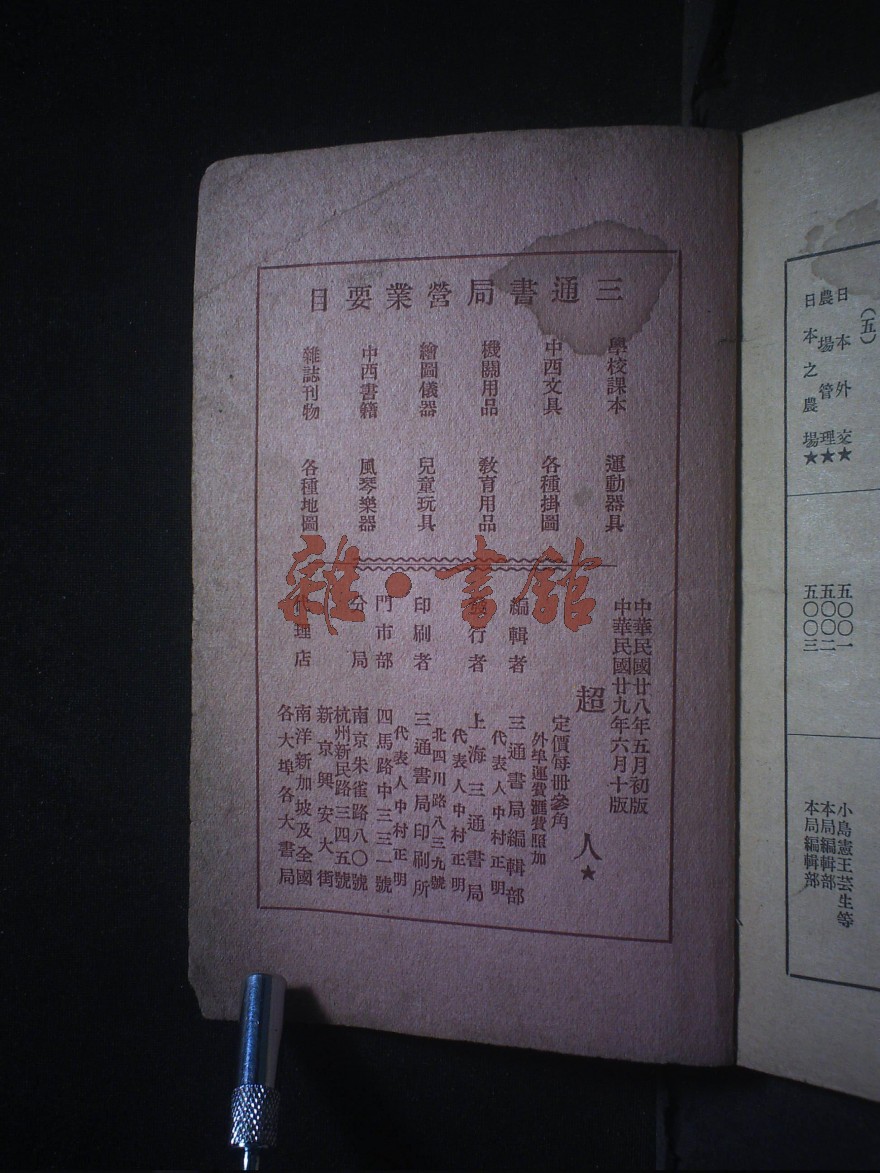 三通書局營業要目
學校課本　運動器具
中西文具　各種掛圖
機關用品　教育用品
繪圖儀器　兒童玩具
中西書籍　風琴樂器
雜誌刊物　各種地圖
中華民國廿八年五月初版
中華民國廿九年六月十版
超人★
定價每冊參角
外埠運費匯費照加
編輯者　三通書局編輯部
代表人中村正明
發行者　上海三通書局
代表人中村正明
北四川路八三九號
印刷者　三通書局印刷所
代表人中村正明
門市部　四馬路中三三一號
分局　南京朱雀路八〇號
杭州新民路三四五號
新京興安大街
代理店　南洋新加坡及全國
各大埠各大書局
雜·書館
（五）
日本外交★　五〇〇一　小島憲王芸生等
農場管理★　五〇〇二　本局編輯部
日本之農場★　五〇〇三　本局編輯部